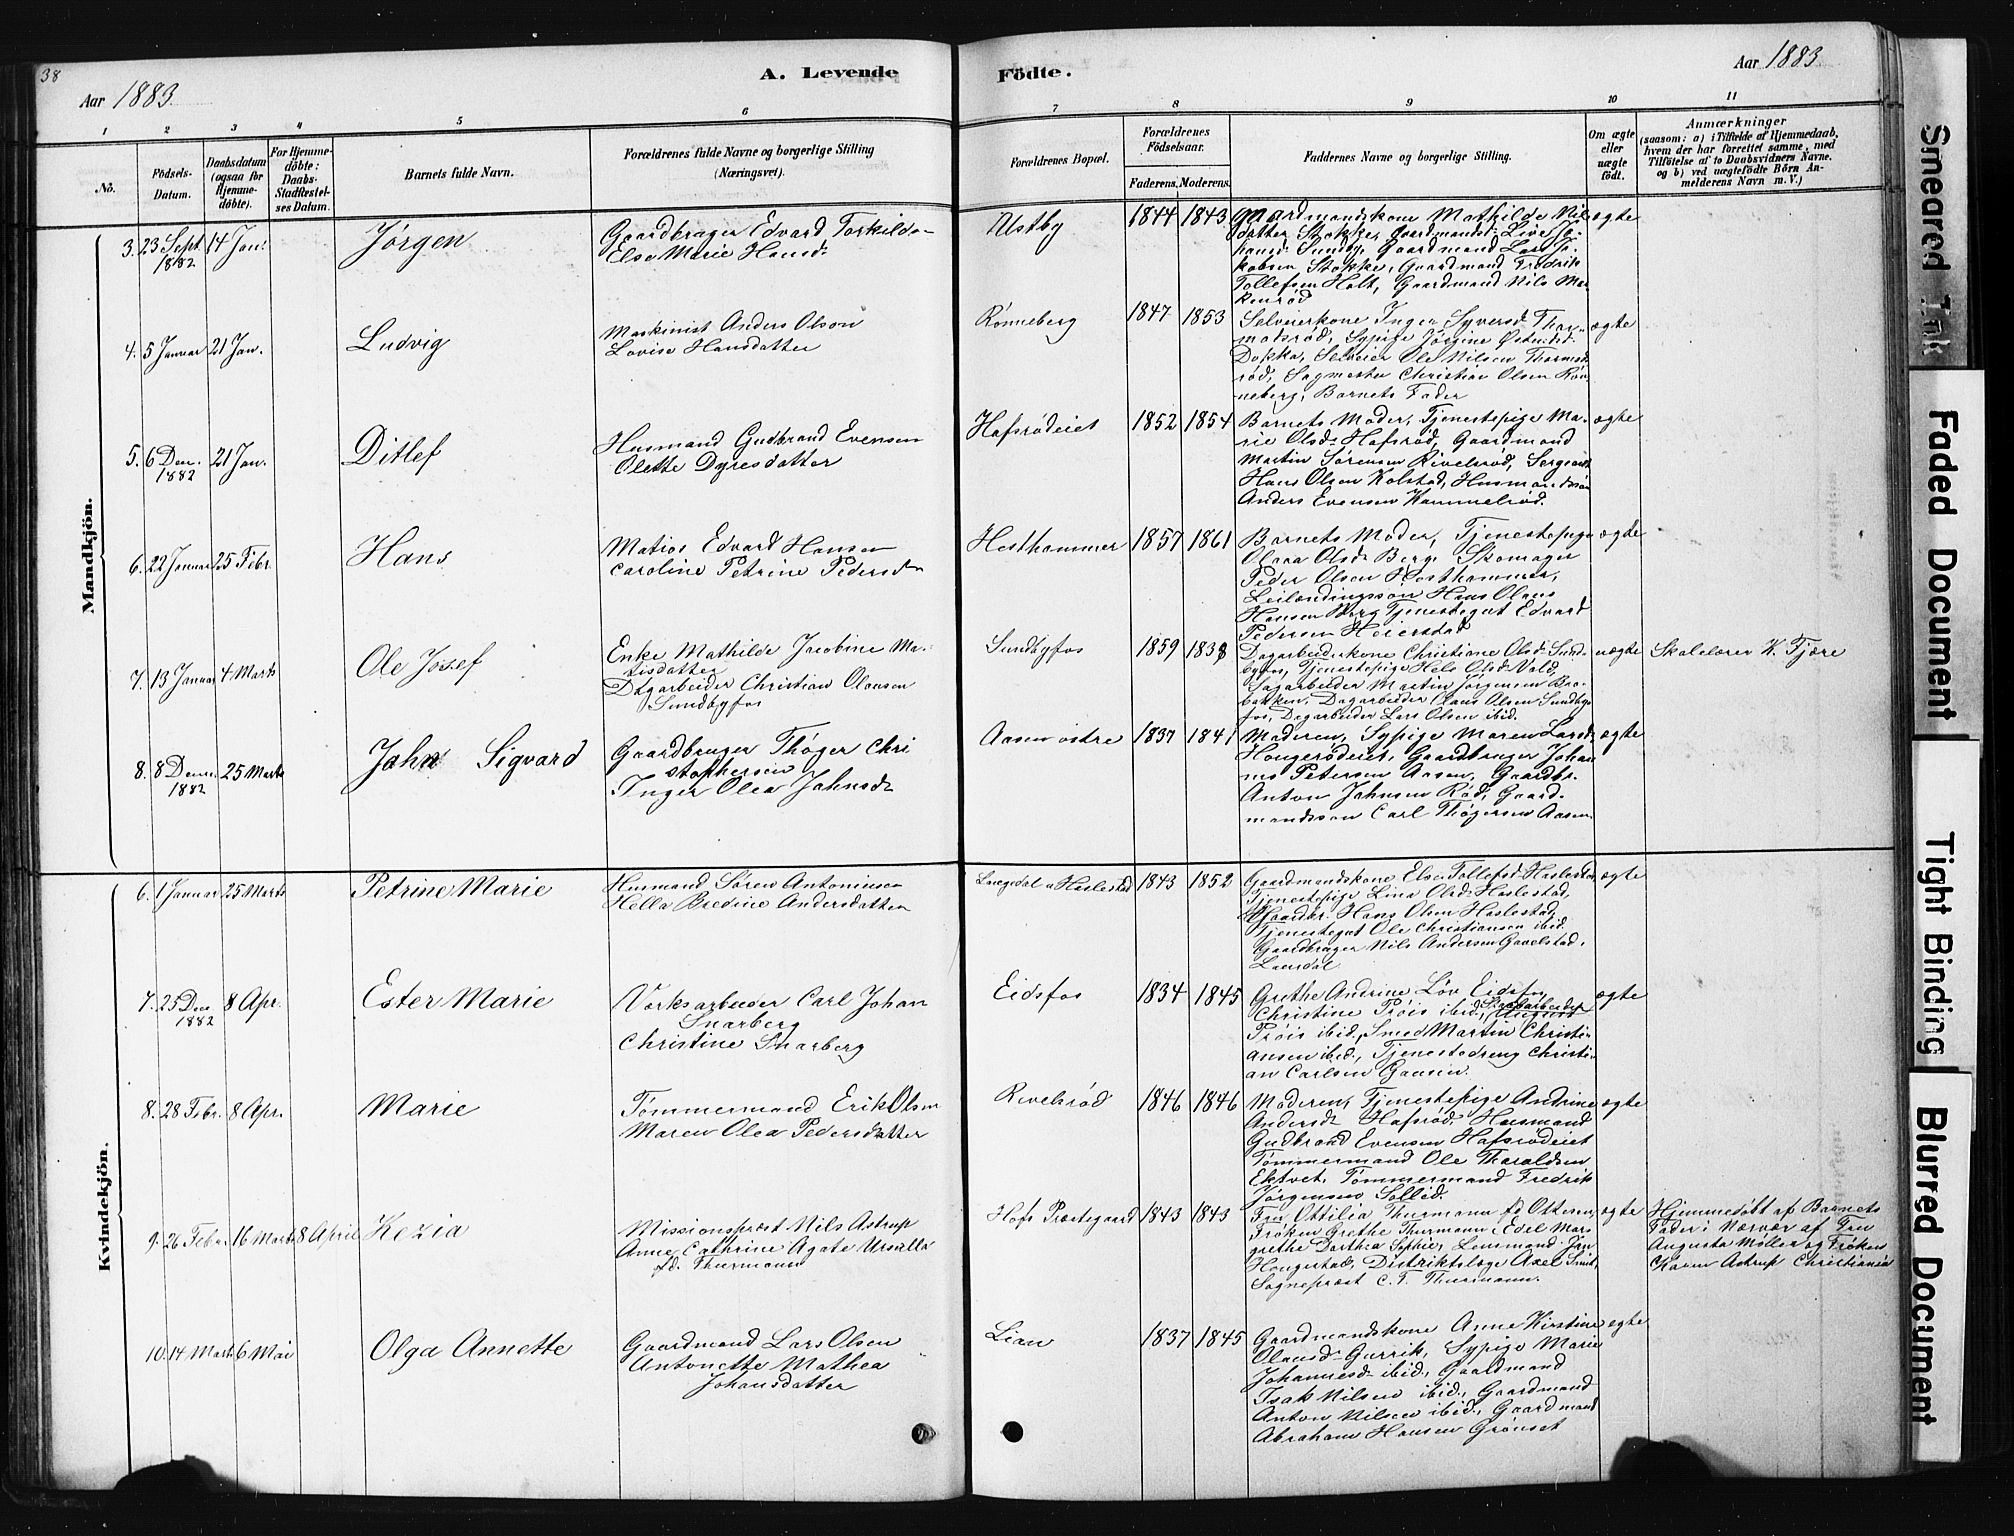 38
Aar 1883.
A. Levende
Födte.
Aar 1883
1 2 3 4 5 6 7 8 9 10 11
No.
Födsels-
Datum.
Daabsdatum
(ogsaa for
Hjemme-
döbte).
For Hjemme-
döbte:
Daabs-
Stadfæstel-
ses Datum.
Barnets fulde Navn.
Forældrenes fulde Navne og borgerlige Stilling
(Næringsvei).
Forældrenes Bopæl.
Forældrenes
Födselsaar.
Faderens.
Moderens.
Faddernes Navne og borgerlige Stilling.
Om ægte
eller
uægte
födt.
Anmærkninger
(saasom: a) i Tilfælde af Hjemmedaab,
hvem der har forrettet samme, med
Tilföielse af to Daabsvidners Navne.
og b) ved uægtefödte Börn An-
melderens Navn m. V.)
Mandkjön.
3. 23 Sept. 1882
14 Jan:
Jörgen
Gaardbruger Edvard Torkilds-
Else Marie Hansd:
Ustby
1844 1843
Gaardmandskone Mathilde Nils
datter Stokke, Gaardmandsd: Live Jo-
hansd: Sundby, Gaardmand Lars Ja-
kobsen Stokke, Gaardmand Fredrik
Tollefsen Holt, Gaardmand Nils
ægte
4. 5 Januar
21 Jan.
Ludvig
Maskinist Anders Olson
Lovise Hansdatter
Rönneberg
1847 1853
Selveierkone Inger Syversd: Thor-
modsröd, Sypige Jörgine
Dokka, Selveier Ole Nilsen Thormods
röd, Sagmester Christian Olsen Rön-
neberg, Barnets Fader
ægte
5. 6 Dec. 1882
21 Jan.
Ditlef
Husmand Gudbrand Evensen
Olette Dyresdatter
Hafsrödeiet
1852 1854
Barnets Moder, Tjenestepige Ma-
rie Olsd: Hafsröd, Gaardmand
Martin Sörensen Rivelsröd, Sergeant
Hans Olsen Kolstad, Husmandssön
Anders Evensen Hammelröd.
ægte
6. 22 Januar
25 Febr.
Hans
Matias Edvard Hansen
Caroline Petrine Pedersdn
Hesthammer
1857 1861
Barnets Moder, Tjenestepige
Olava Olsd: Berg, Skomager
Peder Olsen Hesthammer,
Leilændingssön Hans Olaus
Hansen Berg, Tjenestegut Edvard
Pedersen Heierstad
ægte
7. 13 Januar
4 Marts
Ole Josef
Enke Mathilde Jacobine Ma-
tisdatter
Dagarbeider Christian Olausen
Sundbyfos
Sundbyfos
1859 1838
Dagarbeiderkone Christiane Olsd: Sund-
byfos, Tjenestepige Hele Olsd: Vald,
Sagarbeider Martin Jörgensen Bra-
bakken, Dagarbeider Claus Olsen Sundby-
fos, Dagarbeider Lars Olsen ibid.
uægte
Skolelærer K. Tjære
8. 8 Decm. 1882
25 Marts
Jahn Sigvard
Gaardbruger Thöger Chri
stophersen
Inger Olea Jahnsd:
Aasen östre
1837 1841
Moderen, Sypige Maren Larsd:
Haugerödeiet, Gaardbruger Johan
nes Petersen Aasen, Gaardbr.
Anton Jahnsen Röd, Gaard-
mandssön Carl Thögersen Aasen.
ægte
Kvindekjön.
6. 1 Januar
25 Marts
Petrine Marie
Husmand Sören Antonisen
Hella Bredine Andersdatter
Langedal u Haslestad
1843 1852
Gaardmandskone Else Tollefsd: Haslestad,
Tjenestepige Lina Olsd: Haslestad,
Gaardbr. Hans Olsen Haslestad,
Tjenestegut Ole Christiansen ibid.
Gaardbruger Nils Andersen Gavelstad,
Laurdal
ægte
7. 25 Dec. 1882
8 Apr.
Ester Marie
Verksarbeider Carl Johan
Snarberg
Christine Snarberg
Eidsfos
1834 1845
Grethe Andrine Löv Eidsfos,
Christine Pröis ibid, August
Pröis ibid, Smed Martin Christi-
ansen ibid., Tjenestedreng Christi-
an Carlsen Gaasen.
ægte
8. 28 Febr.
8 Apr.
Marie
Tömmermand Erik Olsen
Maren Olea Pedersdatter
Rivelsröd
1846 1846
Moderen, Tjenestepige Andrine
Andersd: Hafsröd, Husmand
Gudbrand Evensen Hafsrödeiet
Tömmermand Ole Tharaldsen
Ektvet, Tömmermand Fredrik
Jörgensen Sollid.
ægte
9. 26 Febr.
16 Marts
8 April
Kezia
Missionsprest Nils Astrup
Anne Cathrine Agate Ursulla
fd. Thurmann
Hofs Præstegaard
1843 1843
Fru Ottilia Thurmann fd Ottesen,
Fröken Grethe Thurmann, Edel Mar-
grethe Dorthea Sophie, Lensmand Jan
Haugestad, Distriktslæge Axel Smit,
Sogneprest C. F. Thurmann.
ægte
Hjemmedöbt af Barnets
Fader i Nærvær af Fru
Augusta Möller og Fröken
Karen Astrup Christiania
10. 14 Marts
6 Mai
Olga Annette
Gaardmand Lars Olsen
Antonette Mathea
Johansdatter
Lian
1837 1845
Gaardmandskone Anne Kirstine
Olausd: Gurrik, Sypige Marie
Johannesd: ibid., Gaardmand
Isak Nilsen ibid., Gaardmand
Anton Nilsen ibid., Gaardmand
Abraham Hansen Grönset
ægte
Smeared Ink
Faded Document
Tight Binding
Blurred Document